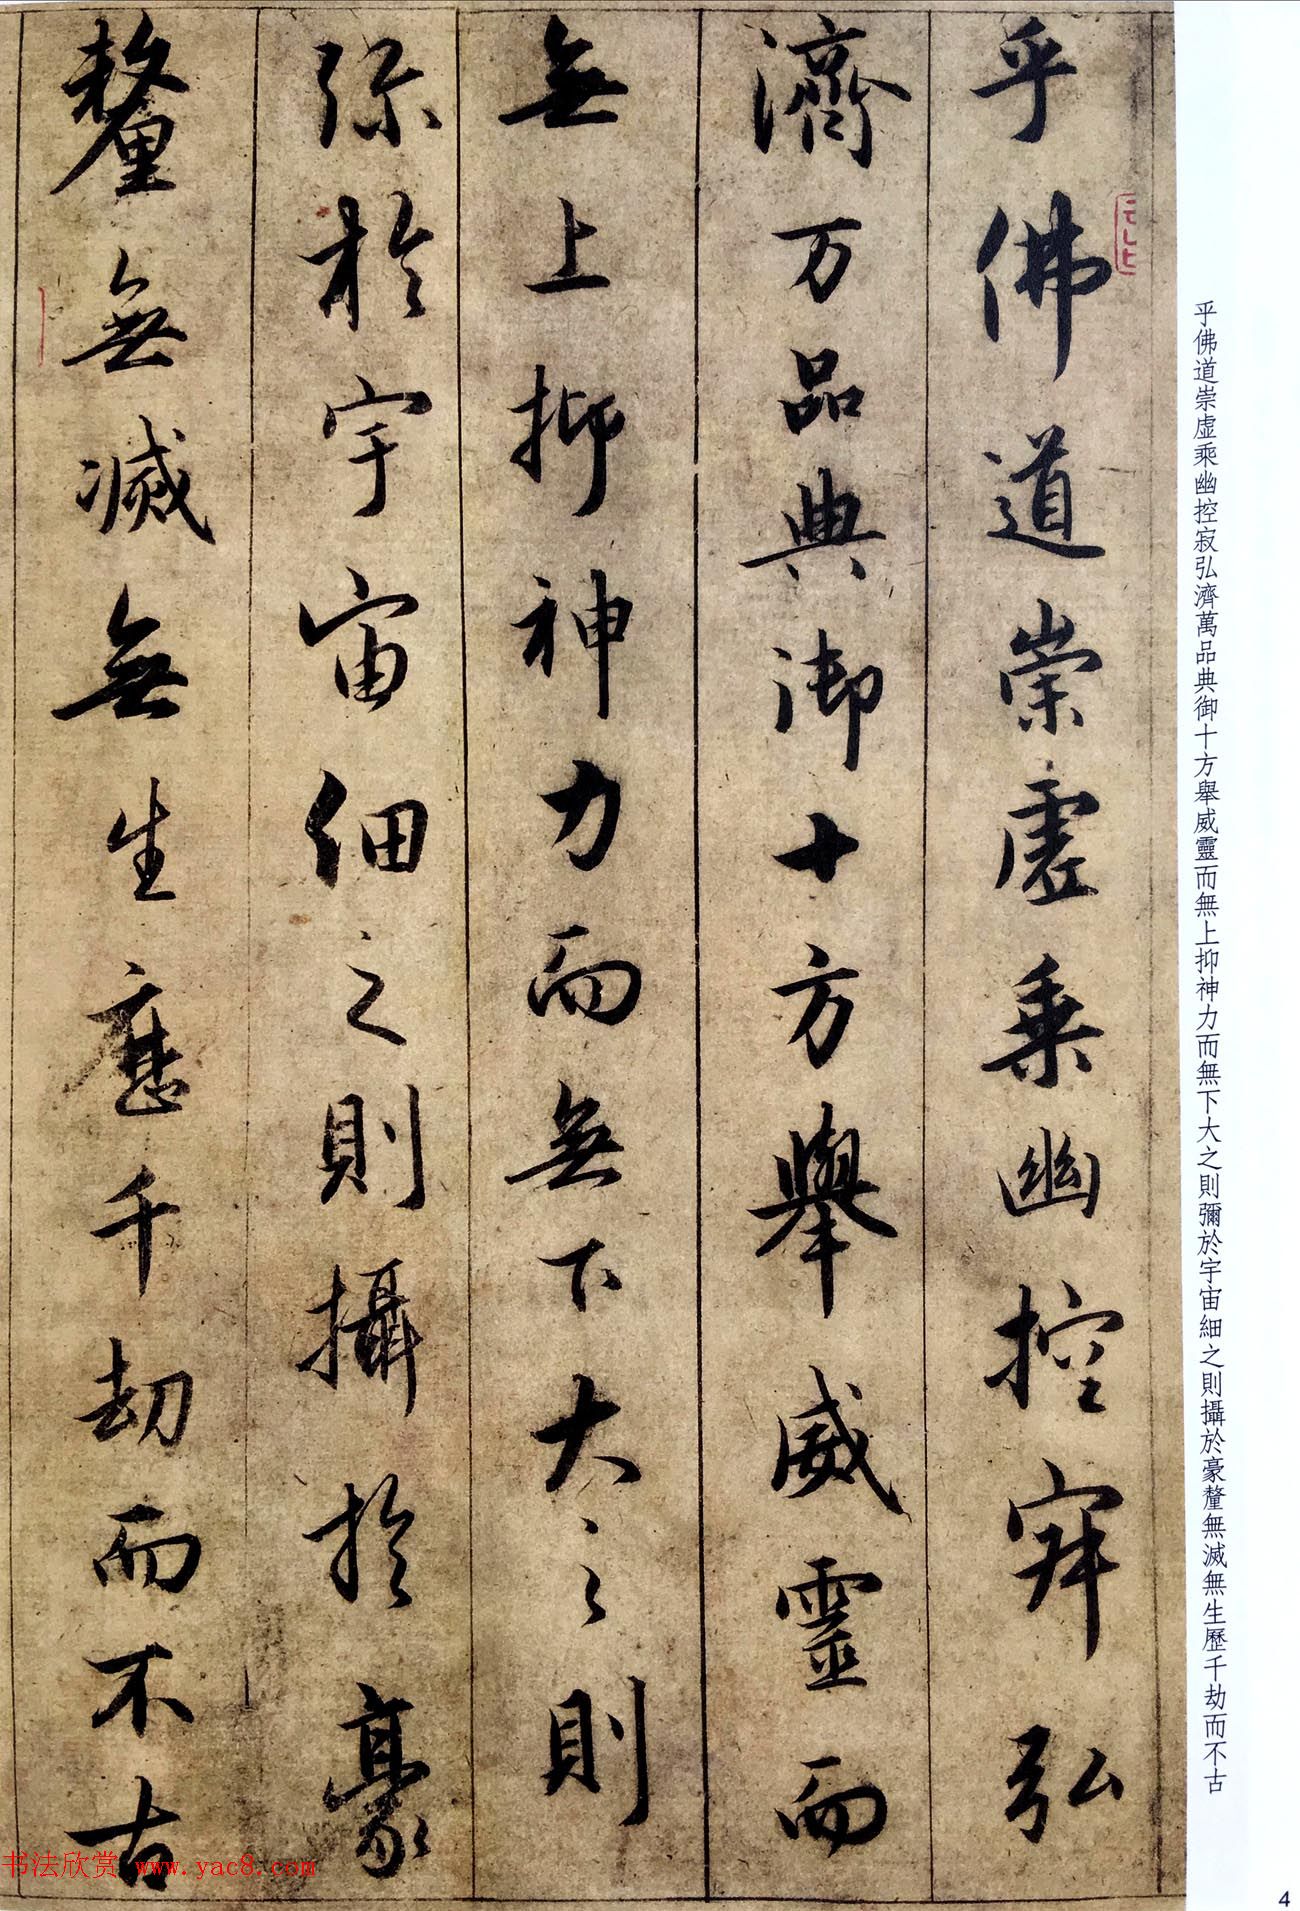 乎佛道崇虛乗幽控寂弘
濟万品典御十方舉威靈而
無上抑神力而無下大之則
弥於宇宙細之則攝於豪
釐無滅無生歷千劫而不古
乎佛道崇虛乘幽控寂弘濟萬品典御十方舉威靈而無上抑神力而無下大之則彌於宇宙細之則攝於豪釐無滅無生歷千劫而不古
书法欣赏 www.yac8.com
4